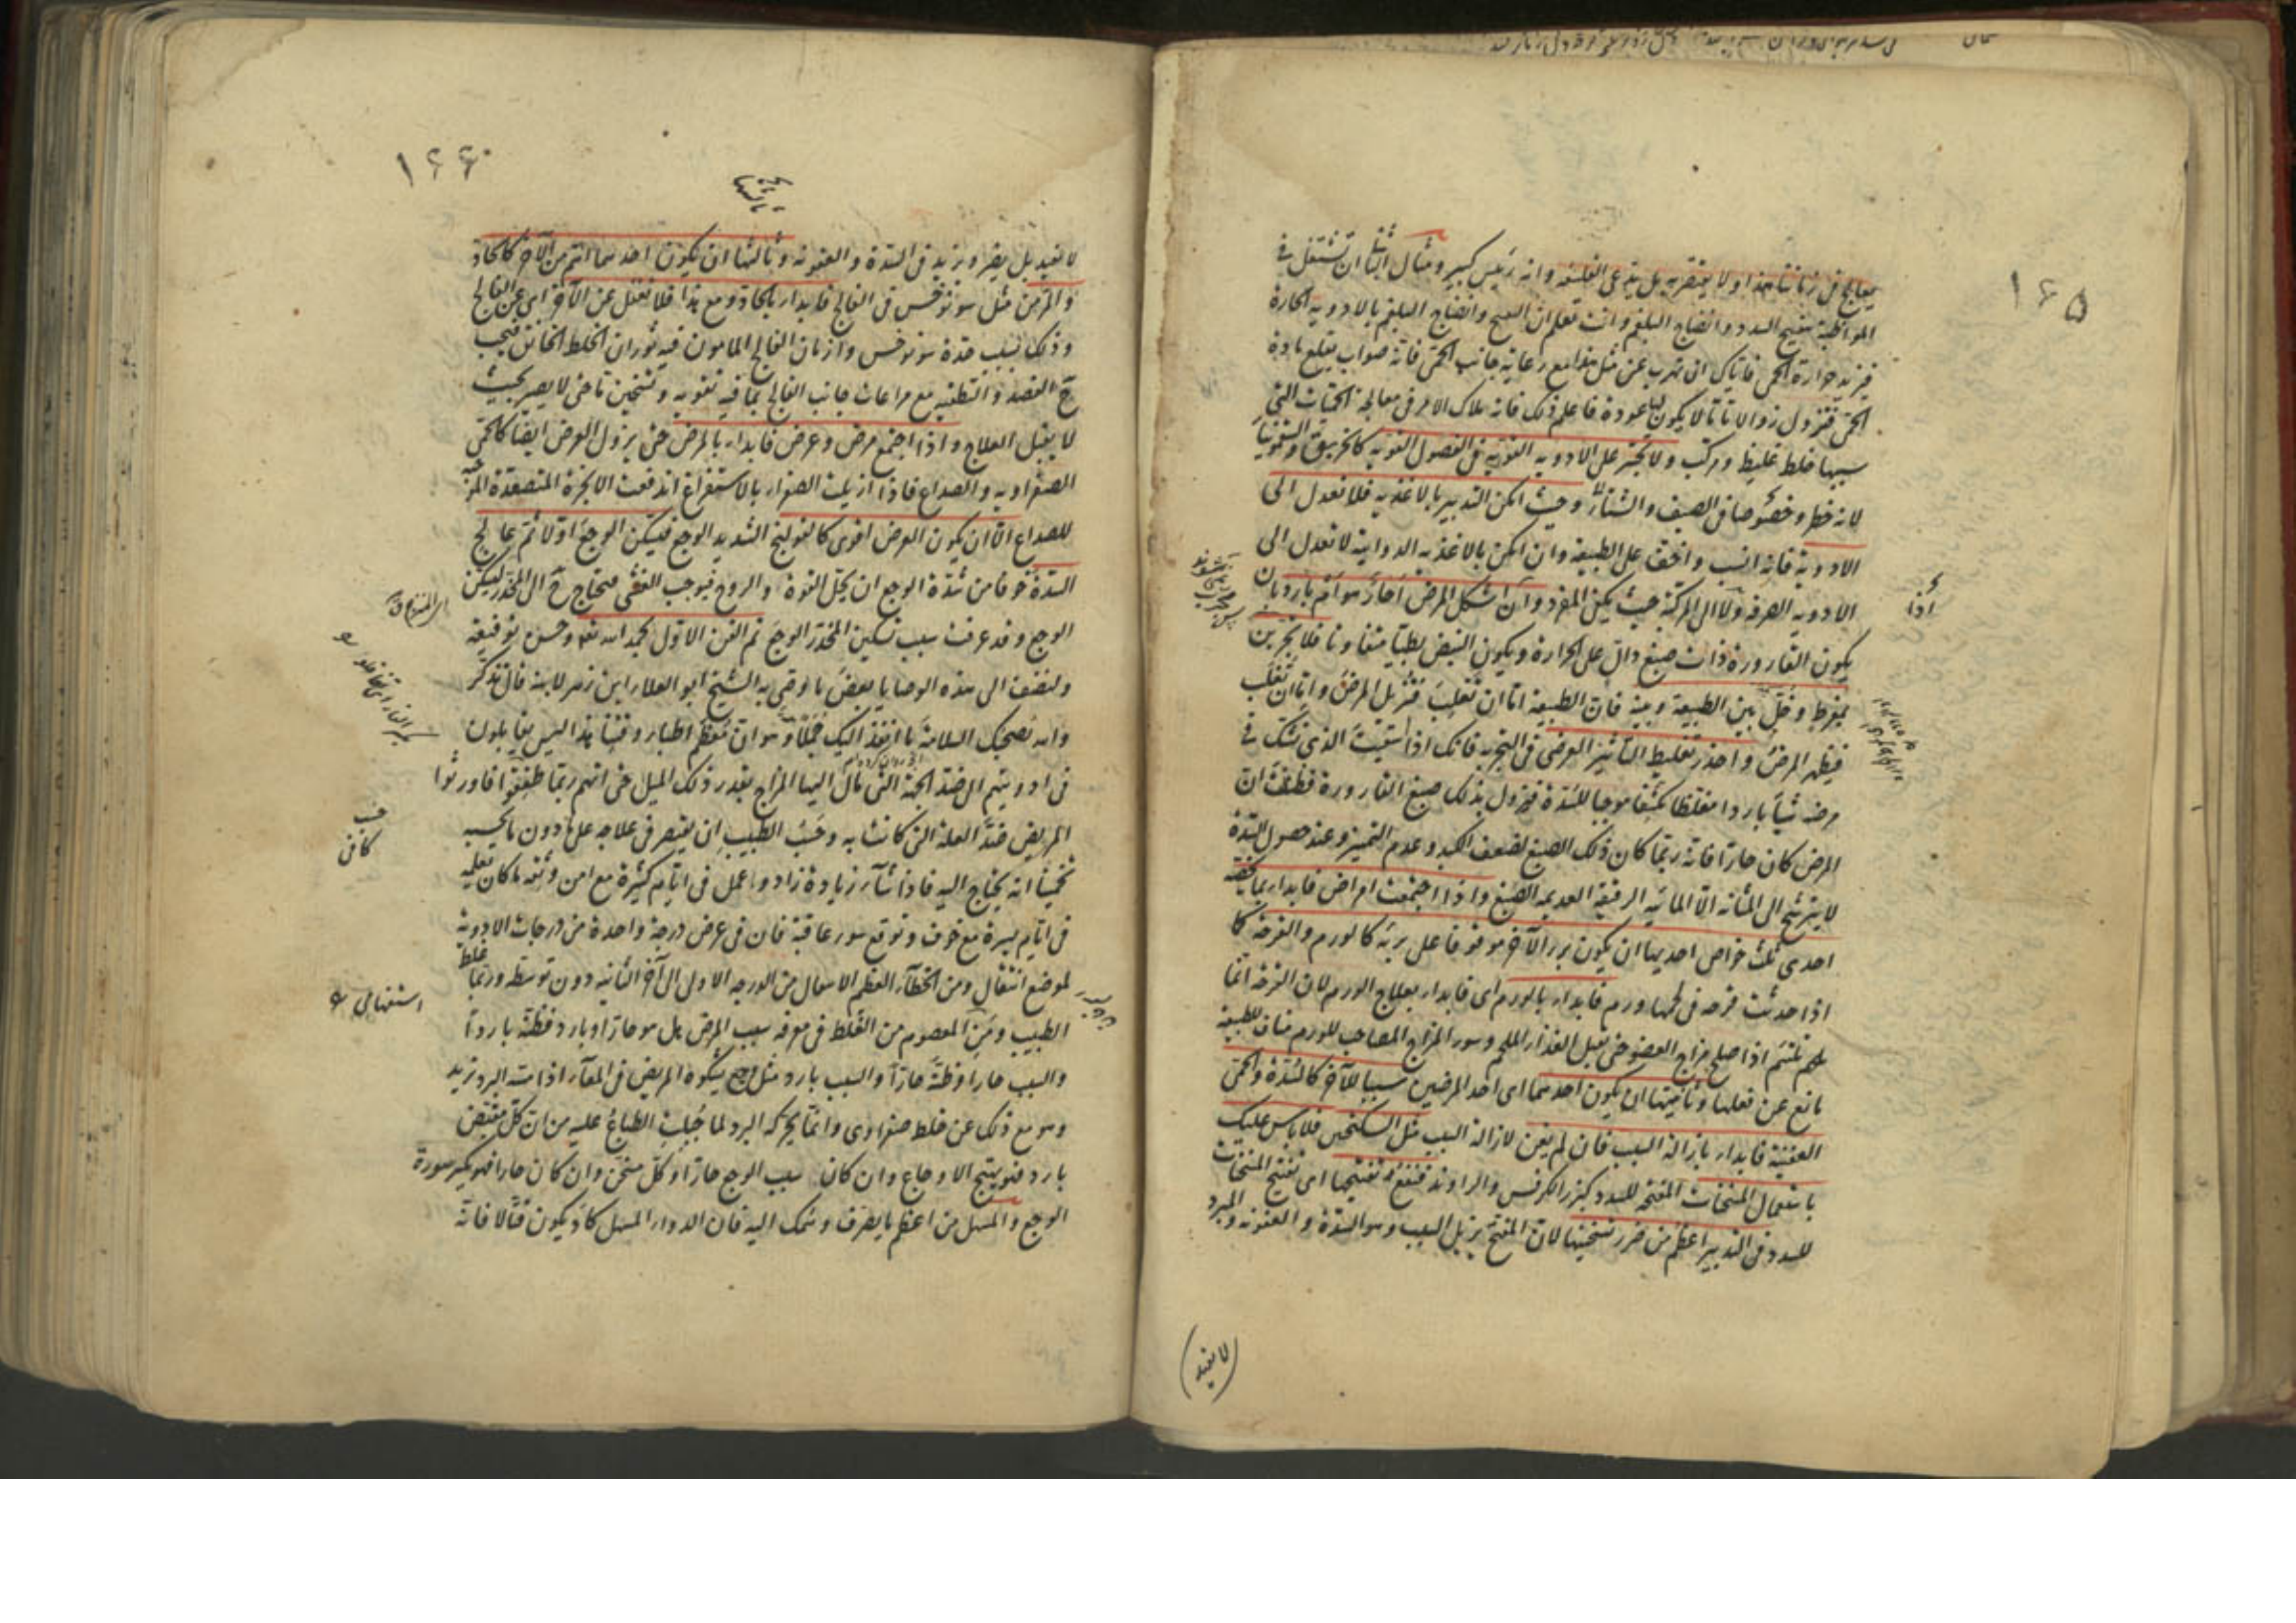 ١۶۵
يعالج فى زماننا هذا ولا يفتقر به بل يدعى الفلسفه وانه رئيس كبير ومثال ايضا ان تشتغل فى
المواظبة بتفتيح السدد وانضاج البلغم وانت تعلم ان التفتيح وانضاج البلغم بالادويه الحارة
فيزيد حرارة الحمى فاياك ان تهرب عن مثل هذا مع رعاية جانب الحمى فانه صواب يقلع مادة
الحمى فتزول زوالا تاما لا يكون لها عودة فاعلم ذلك فانه ملاك الامر فى معالجة الحميات التى
سببها خلط غليظ ومركب ولا تجسر على الادويه القويه فى الفصول القويه كالخربق والسقمونيا
لانه خطر وخصوصا فى الصيف والشتاء وحيث امكن التدبير بالاغذيه فلا تعدل الى
الادوية فانه انسب واخف على الطبيعة وان امكن بالاغذيه الدوائية لا تعدل الى
الادويه الصرفة ولا الى المركبة حيث يمكن المفرد وان اشكل المرض احار هو ام بارد بان
يكون القارورة ذات صبغ دال على الحرارة ويكون النبض بطيئا متفاوتا فلا تجربن
بمفرط وخل بين الطبيعة وبينه فان الطبيعة اما ان تغلب فتزيل المرض واما ان تغلب
فيظهر المرض واحذر تغليط التأثير العرضى فى التجربه فانك اذا سقيت الذى تشك فى
مرضه شيئا باردا مغلظا مكثفا موجبا للسدة فيزول بذلك صبغ القارورة فظننت ان
المرض كان حارا فانه ربما كان ذلك الصبغ لضعف الكبد وعدم التميز وعند حصول السدة
لا يترشح الى المثانه الا المائيه الرقيقة العديمه الصبغ واذا اجتمعت امراض فابدا بما يخصه
احدى ثلث خواص احديها ان يكون برء الآخر موقوفا على برئه كالورم والقرحة كا
اذا حدثت قرحه فى لحمها ورم فابداء بالورم اى فابداء بعلاج الورم لان القرحة انما
تلتئم اذا صلح مزاج العضو حتى يقبل الغذاء الملحم وسوء المزاج المصاحب للورم مناف للطبيعة
مانع عن فعلها وثانيتها ان يكون احدهما اى احد المرضين سببا للآخر كالسدة والحمى
العفنية فابداء بازالة السبب فان لم يغن لازالة السبب مثل السكنجبين فلا باس عليك
باستعمال المسخنات المفتحة للسدد كبزر الكرفس والراوند فنفع تفتيحها اى تفتيح المسخنات
للسدد فى التدبير اعظم من ضرر تسخينها لان المفتح يزيل السبب وهو السدة والعفونه والمبرد
اذا
(لا يفيد)
١۶۶
لا يفيد بل يضر ويزيد فى السدة والعفونه وثالثها ان يكون احدهما اهم من الآخر كالحاد
والمزمن مثل سونوخس فى الفالج فابداء بالحاد ومع هذا فلا تغفل عن الآخر اى عن الفالج
وذلك بسبب حدة سونوخس وازمان الفالج المامون فيه ثوران الخلط الخانق فيجب
ح الفصد والتطفيه مع مراعات جانب الفالج بما فيه تقويه وتسخين تا حتى لا يصير بحيث
لا يقبل العلاج واذا اجتمع مرض وعرض فابداء بالمرض حتى يزول العرض ايضا كالحمى
الصفراويه والصداع فاذا ازيلت الصفراء بالاستفراغ اندفعت الابخرة المتصعدة الموجبة
للصداع الا ان يكون العرض اقوى كالقولنج الشديد الوجع فيسكن الوجع اولا ثم عالج
السدة خوفا من شدة الوجع ان يحل القوة والروح فيوجب الغشى فيحتاج ح الى المخدر ليسكن
الوجع وقد عرفت سبب تسكين المخدر الوجع تم الفن الاول بحمد الله تعه وحسن توفيقه
ولنضف الى هذه الوصايا بعض ما اوصى به الشيخ ابو العلاء ابن زهر لابنه قال تذكر
والله يصحبك السلامة ما انفذ اليك جملا وهو ان معظم اطباء وقتنا هذا ليس يقابلون
فى ادويتهم الى ضد الجهة التى مال اليها المزاج بقدر ذلك الميل حتى انهم ربما طفقوا فاورثوا
المريض ضد العلة التى كانت به وحسب الطبيب ان يقتصر فى علاجه على ما دون ما يحسبه
تخمينا انه يحتاج اليه فاذا شاء زيادة زاد واعمل فى ايام كثيرة مع امن وثقه ما كان تعلمه
فى ايام يسيرة مع خوف وتوقع سوء عاقبة فان فى عرض درجة واحدة من درجات الادوية
لموضع انتقال ومن الخطاء العظيم الاسهال من الدرجه الاولى الى آخر الثانيه دون توسط وربما غلط
الطبيب ومن المعصوم من الغلط فى معرفه سبب المرض هل هو حارا او بارد فظنه باردا
والسبب حارا وظنه حارا والسبب بارد مثل وجع يشكوه المريض فى المعاء اذا مسه البرد تزيد
وهو مع ذلك عن خلط صفراوى وانما يحركه البرد لما جبلت الطباع عليه من ان كل منقبض
بارد فهو يهيج الاوجاع وان كان سبب الوجع حارا وكل مسخن وان كان حارا فهو يكسر سورة
الوجع والمسهل من اعظم ما يصرف وسمك اليه فان الدواء المسهل كاد يكون قتالا فانه
حسب
كافى
استفهامى